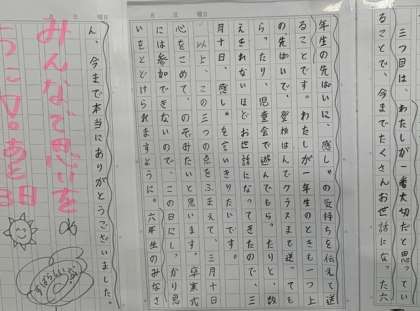 三つ目は、わたしが一番大切だと思ってい
ることで、今までたくさんお世話になった六
年生の先ぱいに、感しゃの気持ちを伝えて送
ることです。わたしが一年生のときも一つ上
の先ぱいで、登校はんでクラスまで送っても
らったり、児童会で遊んでもらったりと、数
えきれないほどお世話になってきたので、三
月十日、感しゃを言いきりたいです。
以上、この三つの点をふまえて、三月十日
心をこめて、のぞみたいと思います。卒業式
には参加できないので、この日にしっかり思
いをとどけられますように。六年生のみなさ
ん、今まで本当にありがとうございました。
みんなで思いを
すばらしい